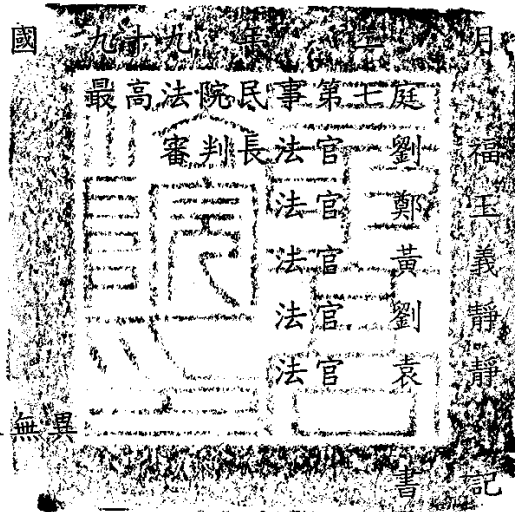 國 九十九 年 月
最高法院民事第七庭
審判長法官 劉 福
法官 鄭 玉
法官 黃 義
法官 劉 靜
法官 袁 靜
無異
書 記